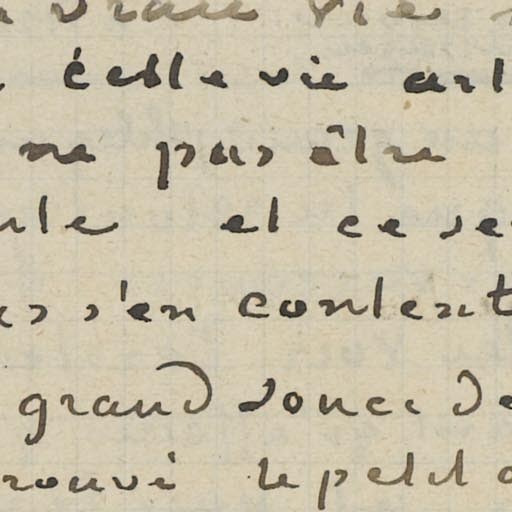 vraie vie
cette vie art
ne pas être
et ce se
s'en content
grand souci de
rouvé le petit